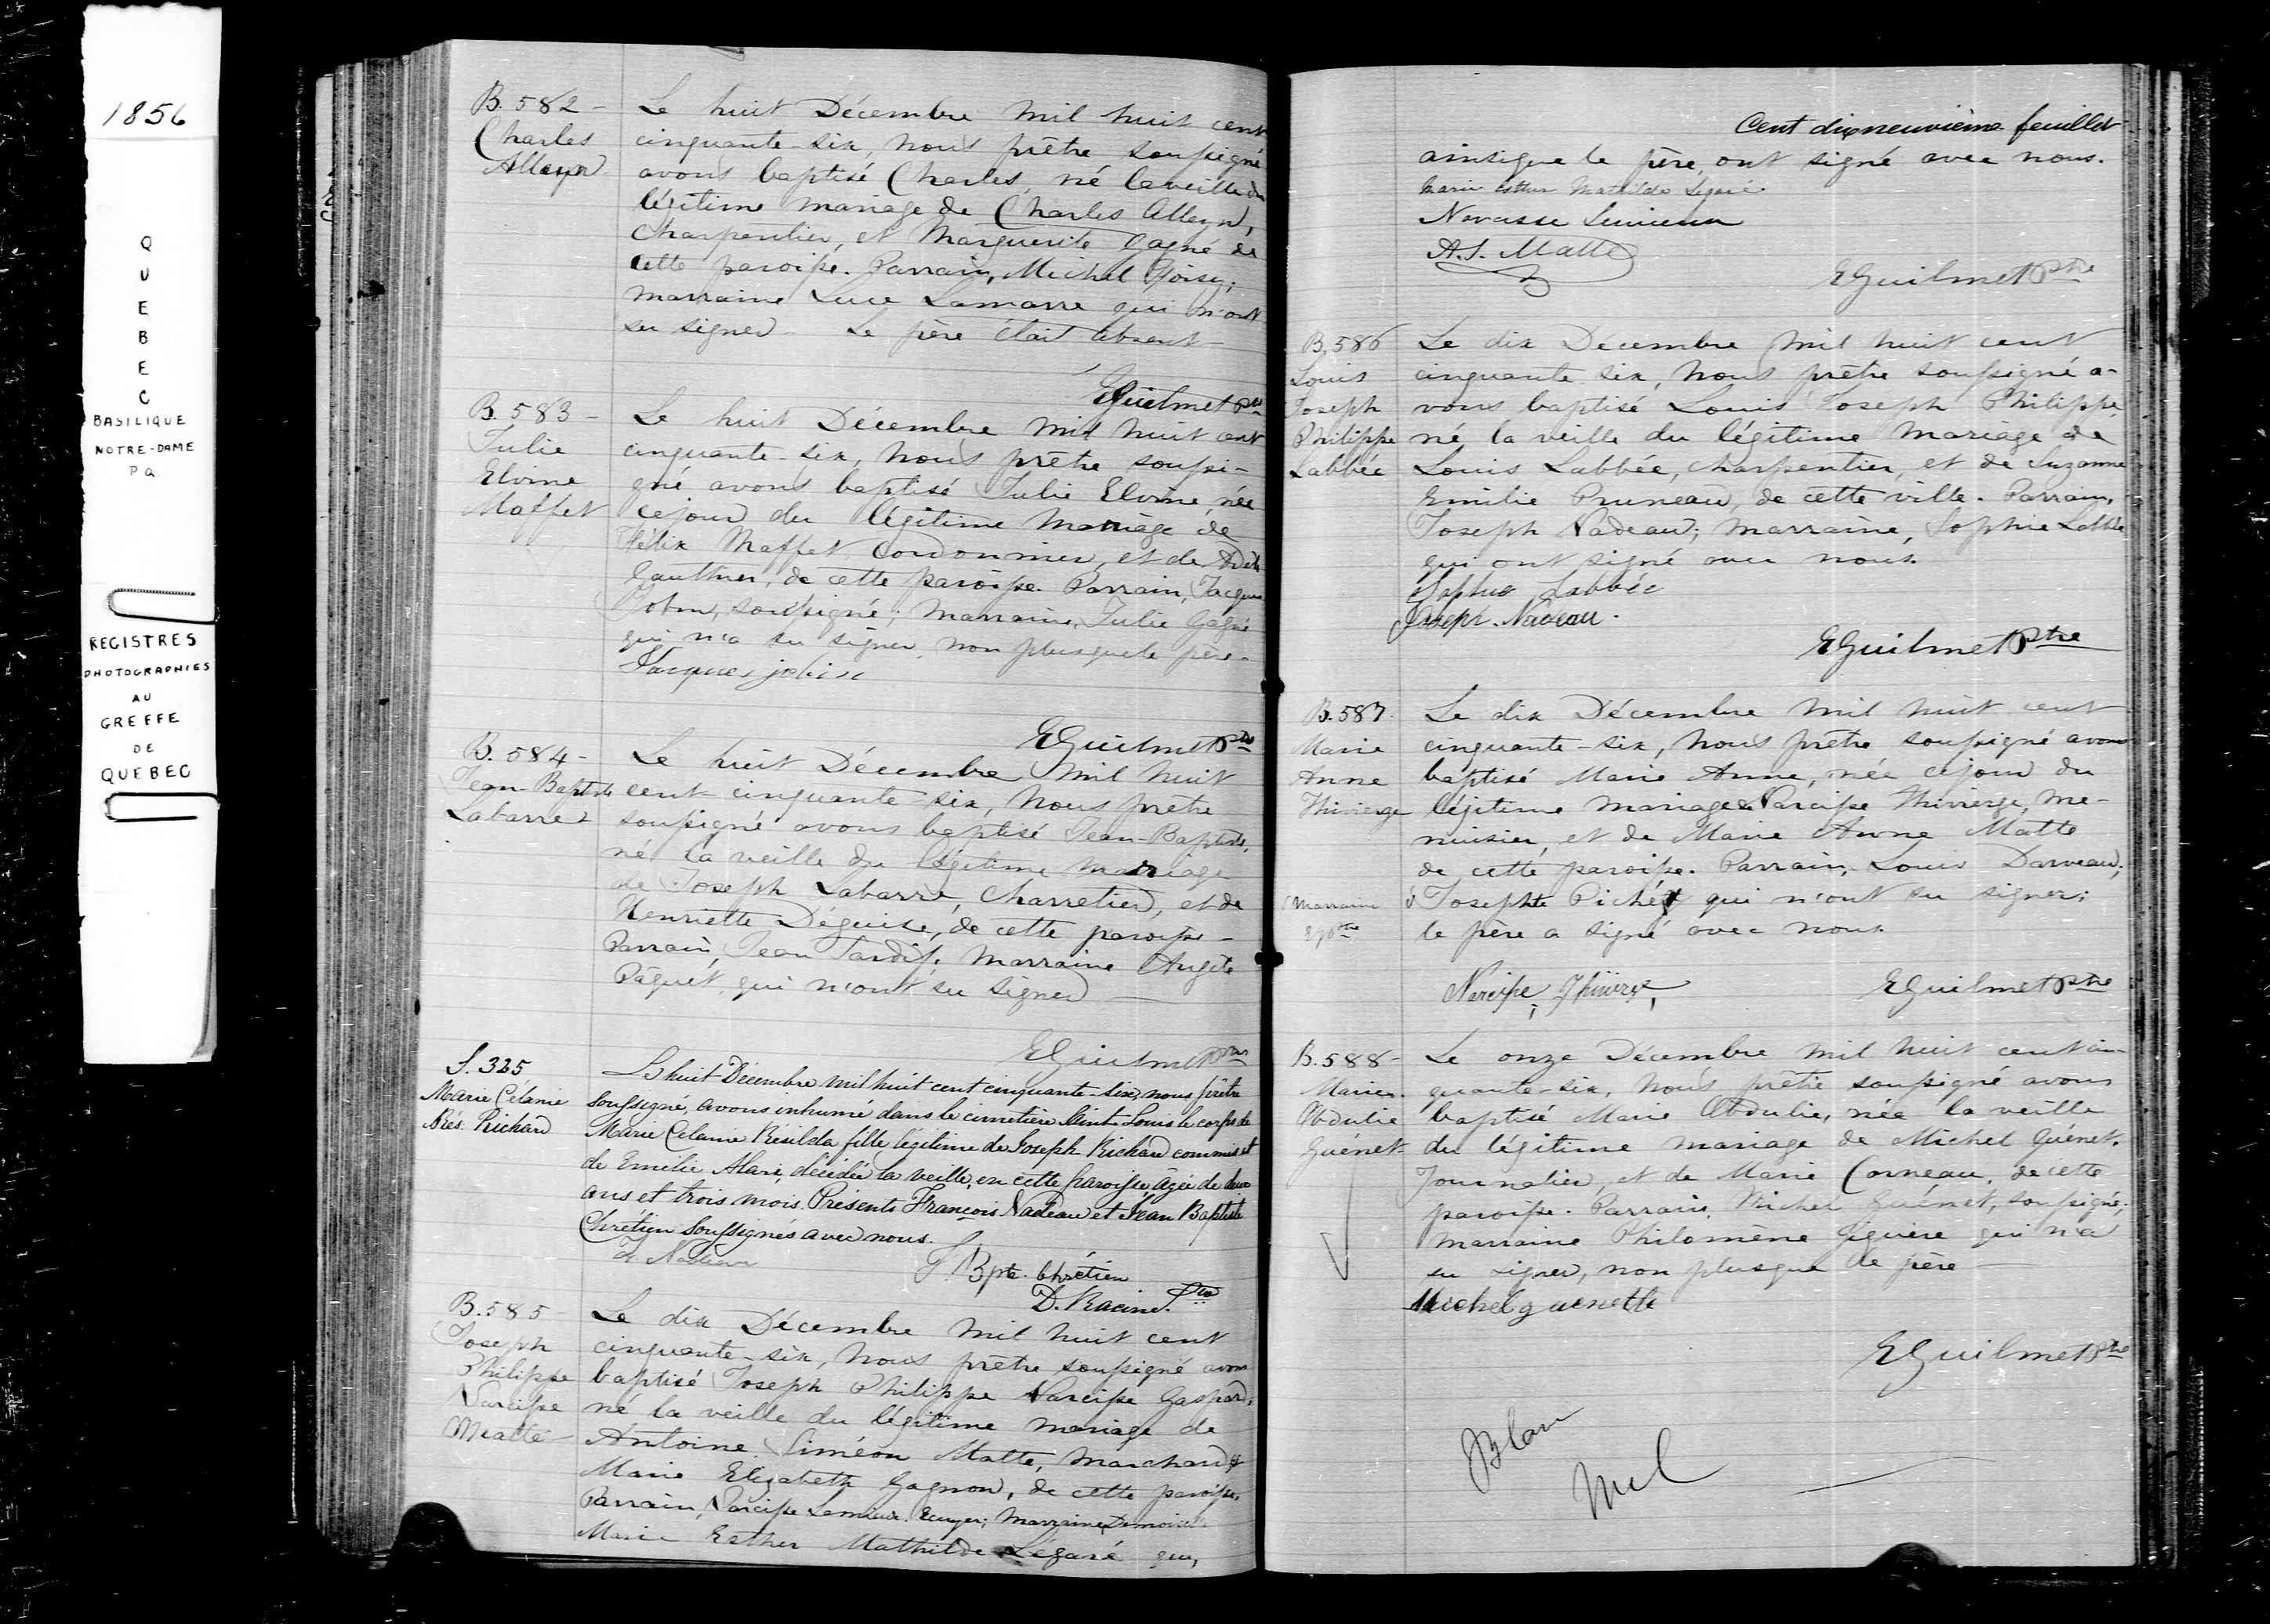 1856
QUEBEC
BASILIQUE
NOTRE-DAME
PQ
REGISTRES
PHOTOGRAPHIES
AU
GREFFE
DE
QUEBEC
B. 582 -
Charles
Alleyn
Le huit Décembre mil huit cent
cinquante-six, nous prêtre soussigné
avons baptisé Charles, né la veille du
légitime mariage de Charles Alleyn,
Charpentier, et Marguerite Gagné de
cette paroisse. Parrain, Michel
marraine Luce Lamarre qui n'ont
su signer. Le père était absent -
EGuilmet Ptre
B. 583 -
Julie
Elvine
Moffet
Le huit Décembre mil huit cent
cinquante-six, nous prêtre soussi-
gné avons baptisé Julie Elvine, née
ce jour du légitime mariage de
Félix Moffet Cordonnier, et de Adèle
Gauthier, de cette paroisse. Parrain, Jacques
Jobin, soussigné; marraine, Julie Gagné
qui n'a su signer, non plus que le père -
Jacques jobin
EGuilmet Ptre
B. 584 -
Jean-Baptiste
Labarre
Le huit Décembre mil huit
cent cinquante-six, nous prêtre
soussigné avons baptisé Jean-Baptiste,
né la veille du légitime mariage
de Joseph Labarre, Charretier, et de
Henriette Déguise, de cette paroisse -
Parrain, Jean Tardif. Marraine Angèle
Pâquet, qui n'ont su signer —
EGuilmet Ptre
S. 325
Marie Célanie
Rés. Richard
Le huit Décembre mil huit cent cinquante-six, nous prêtre
soussigné, avons inhumé dans le cimetière Saint-Louis le corps de
Marie Celanie Résilda fille légitime de Joseph Richard commis et
de Emilie Alari, décédée la veille, en cette paroisse, âgée de deux
ans et trois mois. Présents François Nadeau et Jean Baptiste
Chrétien Soussignés avec nous.
F. Nadeau
J. Bpte. Chrétien
D. Racine Ptre
B. 585 -
Joseph
Philippe
Narcisse
Matte
Le dix Décembre mil huit cent
cinquante-six, nous prêtre soussigné avons
baptisé Joseph Philippe Narcisse Gaspard,
né la veille du légitime mariage de
Antoine Siméon Matte, marchand &
Marie Elizabeth Gagnon, de cette paroisse.
Parrain, Narcisse Lemieux. Ecuyer; Marraine, Demoiselle
Marie Esther Mathilde Légaré qui,
Cent dixneuvième feuillet
ainsi que le père, ont signé avec nous.
Marie Esther Mathilde Légaré
Narcisse Lemieux
A. S. Matte
EGuilmet Ptre
B. 586
Louis
Joseph
Philippe
Labbée
Le dix Decembre mil huit cent
cinquante six, nous prêtre soussigné a-
vons baptisé Louis Joseph Philippe,
né la veille du légitime mariage de
Louis Labbée, charpentier, et de Suzanne
Emilie Pruneau, de cette ville. Parrain,
Joseph Nadeau; marraine, Sophie Labbée
qui ont signé avec nous.
Sophie Labbée
Joseph Nadeau.
EGuilmet Ptre
B. 587.
Marie
Anne
Thivierge
Le dix Décembre mil huit cent
cinquante-six, nous prêtre soussigné avons
baptisé Marie Anne, née ce jour du
légitime mariage de Narcisse Thivierge, me-
nuisier, et de Marie Anne Matte
de cette paroisse. Parrain, Louis Darveau;
Marraine
Josephte Piché qui n'ont su signer;
le père a signé avec nous.
Narcisse Thivierge
EGuilmet Ptre
B. 588 -
Marie
Obdulie
Guénet
Le onze Décembre mil huit cent cin-
quante-six, nous prêtre soussigné avons
baptisé Marie Obdulie, née la veille
du légitime mariage de Michel Guénet.
Journalier, et de Marie Corneau, de cette
paroisse. Parrain, Michel Guénet, soussigné;
marraine Philomène Giguère qui n'a
su signer, non plus que le père —
Michel guenette
EGuilmet Ptre
Blanc